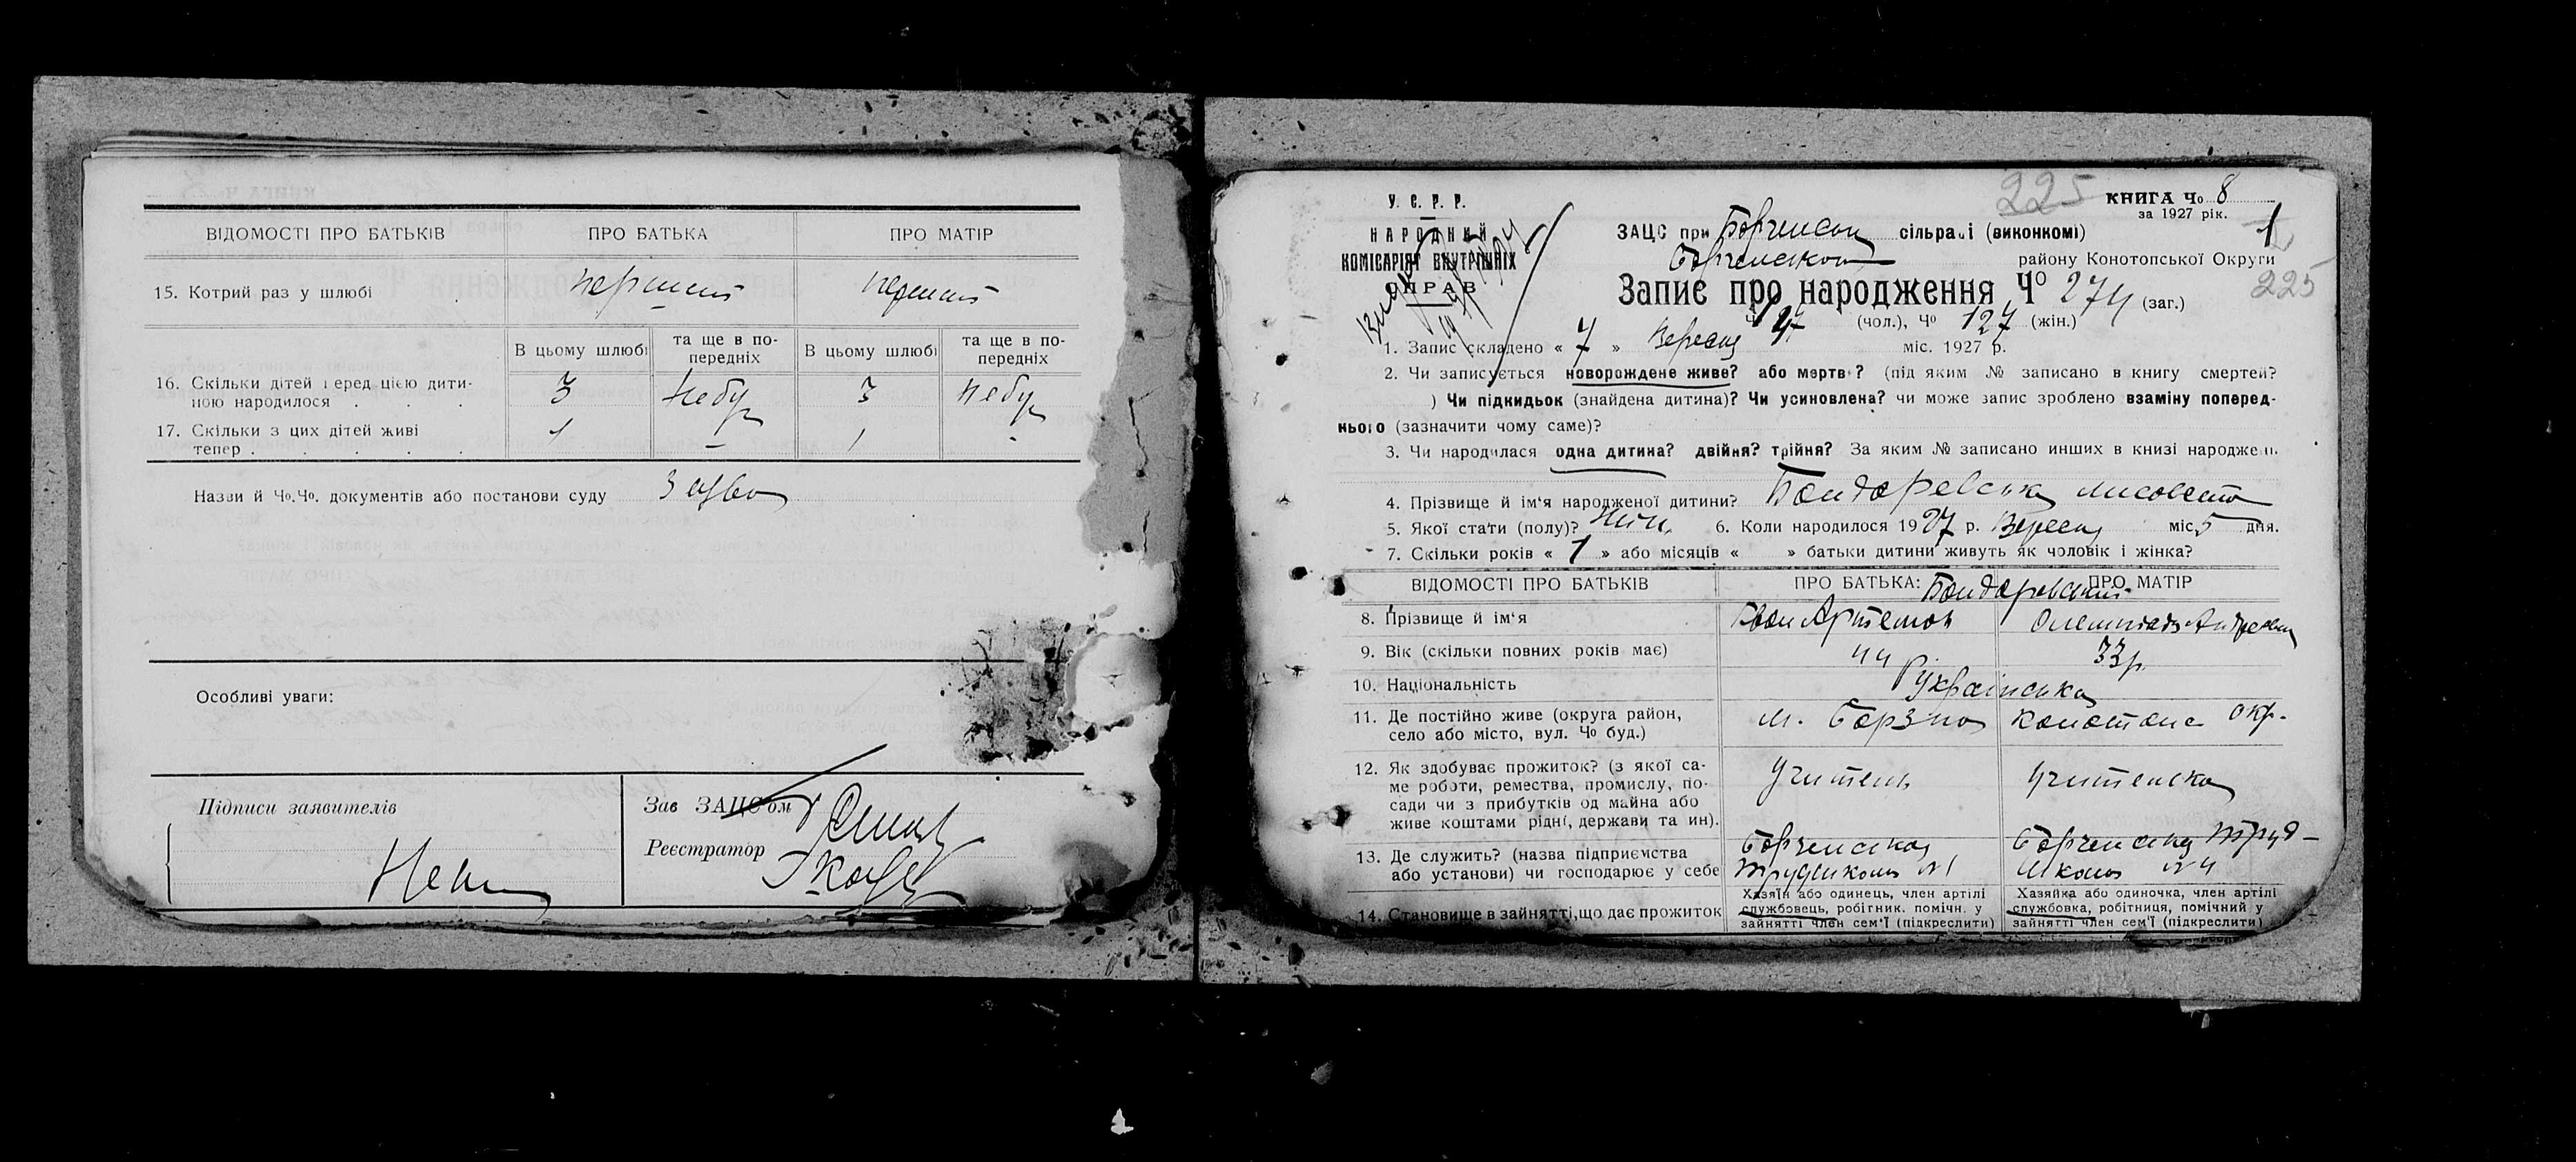 ВІДОМОСТІ ПРО БАТЬКІВ ПРО БАТЬКА ПРО МАТІР
15. Котрий раз у шлюбі
В цьому шлюбі та ще в по-передніх В цьому шлюбі та ще в по-передніх
16. Скільки дітей перед цією дити-
ною народилося . . . 3 Небу 3 Небу
17. Скільки з цих дітей живі
тепер . . . . . 1 – 1 -
Назви й Чо.Чо. документів або постанови суду
Особливі уваги:
Підписи заявителів
Зав ЗАЦС'ом
Реєстратор
225
КНИГА Чо 8
за 1927 рік.
У. С. Р. Р.
НАРОДНИЙ
КОМІСАРІЯТ ВНУТРІШНІХ
СПРАВ
ЗАЦС при сільраді (виконкомі) 1
району Конотопської Округи
Запис про народження Чо 274 (заг.) 225
Чо (чол.), Чо 127 (жін.)
1. Запис складено « 7 » Вересня міс. 1927 р.
2. Чи записується новорождене живе? або мертве? (під яким № записано в книгу смертей?
) Чи підкидьок (знайдена дитина)? Чи усиновлена? чи може запис зроблено взаміну поперед-
нього (зазначити чому саме)?
3. Чи народилася одна дитина? двійня? трійня? За яким № записано инших в книзі народжен.
4. Прізвище й ім'я народженої дитини? Бондаревська Лисовета
5. Якої стати (полу)? Жін. 6. Коли народилося 1927 р. Вересня міс. 5 дня.
7. Скільки років « 1 » або місяців « » батьки дитини живуть як чоловік і жінка?
ВІДОМОСТІ ПРО БАТЬКІВ ПРО БАТЬКА: ПРО МАТІР
Бондаревський
8. Прізвище й ім'я Іван Артемов
9. Вік (скільки повних років має) 44 33 р.
10. Національність Українська
11. Де постійно живе (округа район,
село або місто, вул. Чо буд.) м. Борзна Конотопс окр.
12. Як здобуває прожиток? (з якої са-
ме роботи, ремества, промислу, по-
сади чи з прибутків од майна або
живе коштами рідні, держави та ин). Учитель Учителька
13. Де служить? (назва підприємства
або установи) чи господарює у себе Борзенська Трудшкола №1 Борзенська Труд-школа №4
14. Становище в зайнятті, що дає прожиток
Хазяїн або одинець, член артілі
службовець, робітник. помічн. у
зайнятті член сем'ї (підкреслити)
Хазяйка або одиночка, член артілі
службовка, робітниця, помічний у
зайнятті член сем'ї (підкреслити)